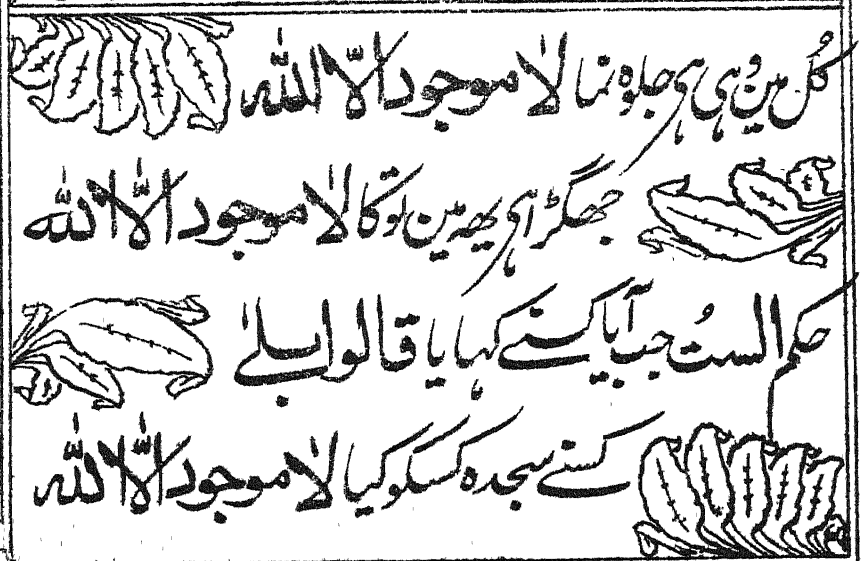 کُل مین وُہی ہی جلوہ نما لا موجود الّا اللّٰہ
جھگڑا ہی یھہ مین تو کا لا موجود الّا اللّٰہ
حکم الستُ جب آیا کسنے کہا یا قالوا بلےٰ
کسنے سجدہ کسکو کیا لا موجود الّا اللّٰہ